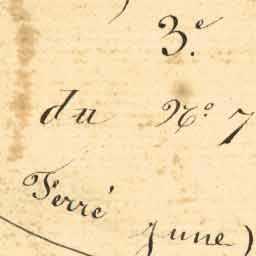 3.e
du No. 7
Ferré
June)